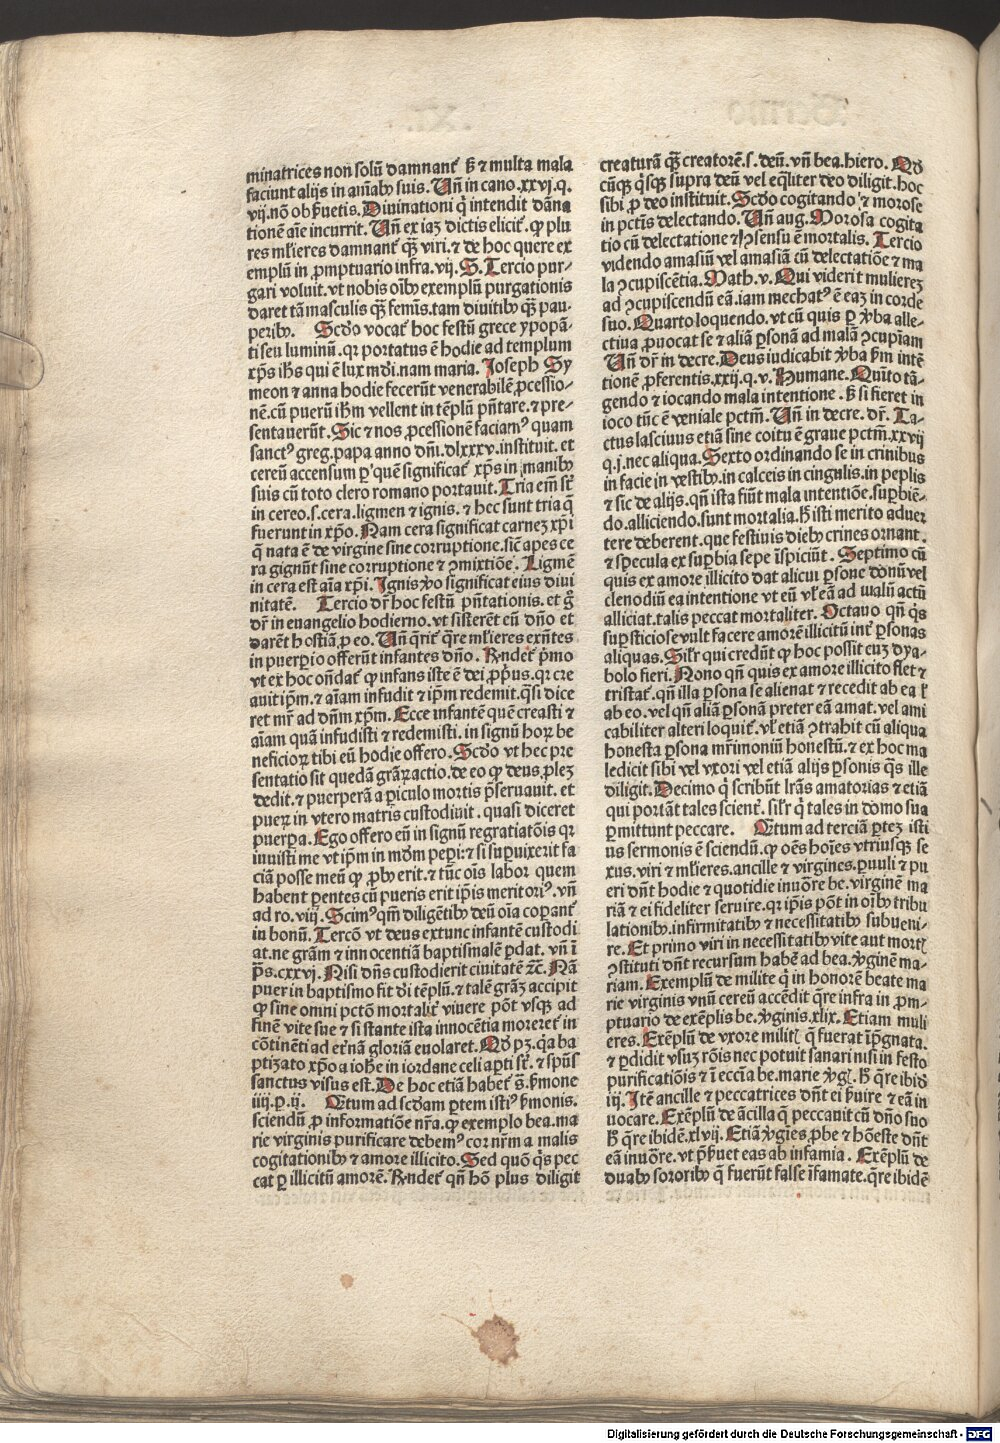 minatrices non solū damnant᷑ sꝫ ⁊ multa mala
faciunt alijs in aīabꝰ suis. Uñ in cano. xxvj. q.
vij. nō obẜuetis. Diuinationi q̇ intendit dāna
tionē aīe incurrit. Uñ ex iaꝫ dictis elicit᷑. ꝙ plu
res mľieres damnant᷑ qꝫ viri. ⁊ de hoc quere ex
emplū in ꝓmptuario infra. vij. S. Tercio pur⸗
gari voluit. vt nobis oībꝰ exemplū purgationis
daret tā masculis qꝫ femīs. tam diuitibꝰ qꝫ pau⸗
peribꝰ. Scdo vocat᷑ hoc festū grece ypopā⸗
ti seu luminū. qꝛ portatus ē hodie ad templum
xp̄s ih̄s qui ē lux mūdi. nam maria. Joseph Sy
meon ⁊ anna hodie fecerūt venerabilē ꝓcessio⸗
nē. cū puerū ih̄m vellent in tēplū p̄ntare. ⁊ pre⸗
sentauerūt. Sic ⁊ nos ꝓcessionē faciamꝰ quam
sanctꝰ greg. papa anno dn̄i. dlxxxv. instituit. et
cereū accensum ꝑ quē significat᷑ xp̄s in manibꝰ
suis cū toto clero romano portauit. Tria em̄ sūt
in cereo. s. cera. ligmen ⁊ ignis. ⁊ hec sunt tria q̄
fuerunt in xp̄o. Nam cera significat carneꝫ xp̄i
q̄ nata ē de virgine sine corruptione. sic̄ apes ce
ra gignūt sine corruptione ⁊ ꝯmixtiōe. Ligmē
in cera est aīa xp̄i. Ignis ꝟo significat eius diui
nitatē. Tercio dr̄ hoc festū p̄ntationis. et g̊
dr̄ in euangelio hodierno. vt sisterēt eū dn̄o et
darēt hostiā ꝓ eo. Uñ q̄rit᷑ q̄re mľieres exn̄tes
in puerꝑio offerūt infantes dn̄o. Rn̄det᷑ p̄mo
vt ex hoc on̄dat᷑ ꝙ infans iste ē dei ꝓpꝰus. qꝛ cre
auit ip̄m. ⁊ aīam infudit ⁊ ip̄m redemit. q̄si dice
ret mr̄ ad dn̄m xp̄m. Ecce infantē quē creasti ⁊
aīam quā infudisti ⁊ redemisti. in signū hoꝝ be
neficioꝝ tibi eū hodie offero. Scdo vt hec pre
sentatio sit quedā grāꝝ actio. de eo ꝙ deus ꝓleꝫ
dedit. ⁊ puerperā a ꝑiculo mortis p̄seruauit. et
pueꝝ in vtero matris custodiuit. quasi diceret
puerꝑa. Ego offero eū in signū regratiatōis qꝛ
iuuisti me vt ip̄m in mūdm peꝑi: ⁊ si suꝑuixerit fa
ciā posse meū ꝙ ꝓbꝰ erit. ⁊ tūc oīs labor quem
habent ꝑentes cū pueris erit ip̄is meritoriꝰ. vñ
ad ro. viij. Scimꝰ qm̄ diligētibꝰ deū oīa coꝑant᷑
in bonū. Tercō vt deus extunc infantē custodi
at. ne grām ⁊ innocentiā baptismalē ꝑdat. vñ ī
ps̄. cxxvj. Nisi dn̄s custodierit ciuitatē ⁊c̄. Nā
puer in baptismo fit dei tēplū. ⁊ talē grāꝫ accipit
ꝙ sine omni pctō mortali vt viuere pōt vsqꝫ ad
finē vite sue ⁊ si stante ista innocētia moreret᷑ in
cōtinēti ad et᷑nā gloriā euolaret. Qd ptꝫ. q̇a ba
ptizato xp̄o a ioh̄e in iordane celi aꝑti st̄. ⁊ sp̄us
sanctus visus est. De hoc etiā habet᷑ s. ẜmone
iiij. ꝑ. ij. Qtum ad scdam ꝑtem istiꝰ ẜmonis.
sciendū ꝓ informatiōe nr̄a. ꝙ exemplo bea. ma
rie virginis purificare debemꝰ cor nr̄m a malis
cogitationibꝰ ⁊ amore illicito. Sed quō q̇s pec
cat ꝑ illicitū amorē. Rn̄det᷑ qn̄ hō plus diligit
creaturā qꝫ creatorē. s. deū. vñ bea. hiero. Qd
cūqꝫ q̇sqꝫ supra deū vel eq̄liter deo diligit. hoc
sibi ꝓ deo instituit. Scdo cogitando ⁊ morose
in pctīs delectando. Uñ aug. Morosa cogita
tio cū delectatione ⁊ ꝯsensu ē mortalis. Tercio
videndo amasiū vel amasiā cū delectatiōe ⁊ ma
la ꝯcupiscētia. Math. v. Qui viderit muliereꝫ
ad ꝯcupiscendū eā. iam mechatꝰ ē eaꝫ in corde
suo. Quarto loquendo. vt cū quis ꝑ ꝟba alle⸗
ctiua ꝓuocat se ⁊ aliā ꝑsonā ad malā ꝯcupīam
Uñ dr̄ in decre. Deus iudicabit ꝟba ẜm intē
tionē ꝓferentis. xxij. q. v. Humane. Quīto tā⸗
gendo ⁊ iocando mala intentione. sꝫ si fieret in
ioco tūc ē veniale pctm̄. Uñ in decre. dr̄. Ta⸗
ctus lasciuus etiā sine coitu ē graue pctm̄. xxvij
q. j. nec aliqua. Sexto ordinando se in crinibus
in facie in vestibꝰ. in calceis in cingulis. in peplis
⁊ sic de alijs. qn̄ ista fiūt mala intentiōe. suꝑbiē⸗
do. alliciendo. sunt mortalia. sꝫ isti merito aduer
tere deberent. que festiuis diebꝰ crines ornant.
⁊ specula ex suꝑbia sepe īspiciūt. Septimo cū
quis ex amore illicito dat alicui ꝑsone donū vel
clenodiū ea intentione vt eū vľ eā ad malū actū
alliciat. talis peccat mortaliter. Octauo qn̄ q̇s
suꝑsticiose vult facere amorē illicitū int᷑ ꝑsonas
aliquas. Silr̄ qui credūt ꝙ hoc possit cuꝫ dya⸗
bolo fieri. Nono qn̄ quis ex amore illicito flet ⁊
tristat᷑. qn̄ illa ꝑsona se alienat ⁊ recedit ab ea ľ
ab eo. vel qn̄ aliā ꝑsonā preter eā amat. vel ami
cabiliter alteri loquit᷑. vľ etiā ꝯtrahit cū aliqua
honesta ꝑsona mr̄imoniū honestū. ⁊ ex hoc ma
ledicit sibi vel vxori vel etiā alijs ꝑsonis q̄s ille
diligit. Decimo q̇ scribūt lr̄as amatorias ⁊ etiā
qui portāt tales scient᷑. silr̄ q̇ tales in domo sua
ꝑmittunt peccare. Qtum ad terciā ꝑteꝫ isti
us sermonis ē sciendū. ꝙ oēs hoīes vtriusqꝫ se
xus. viri ⁊ mľieres. ancille ⁊ virgines. ꝑuuli ⁊ pu
eri dn̄t hodie ⁊ quotidie inuōre be. virginē ma
riā ⁊ ei fideliter seruire. qꝛ ip̄is pōt in oībꝰ tribu
lationibꝰ. infirmitatibꝰ ⁊ necessitatibꝰ subueni⸗
re. Et primo viri in necessitatibꝰ vite aut mortꝭ
ꝯstituti dn̄t recursum habē ad bea. ꝟginē ma⸗
riam. Exemplū de milite q̇ in honorē beate ma
rie virginis vnū cereū accēdit q̄re infra in ꝓm⸗
ptuario de exēplis be. ꝟginis. xlix. Etiam muli
eres. Exēplū de vxore militꝭ q̄ fuerat īp̄gnata.
⁊ ꝑdidit vsuꝫ rōis nec potuit sanari nisi in festo
purificatiōis ⁊ ī eccīa be. marie ꝟgīs. sꝫ q̄re ibid
iij. Itē ancille ⁊ peccatrices dn̄t ei ẜuire ⁊ eā in
uocare. Exēplū de ācilla q̄ peccauit cū dn̄o suo
sꝫ q̄re ibidē. xlvij. Etiā ꝟgīes ꝓbe ⁊ hōeste dn̄t
eā inuōre. vt p̄ẜuet eas ab infamia. Exēplū de
duabꝰ sororibꝰ q̄ fuerūt false īfamate. q̄re ibidē
Digitalisierung gefördert durch die Deutsche Forschungsgemeinschaft - DFG